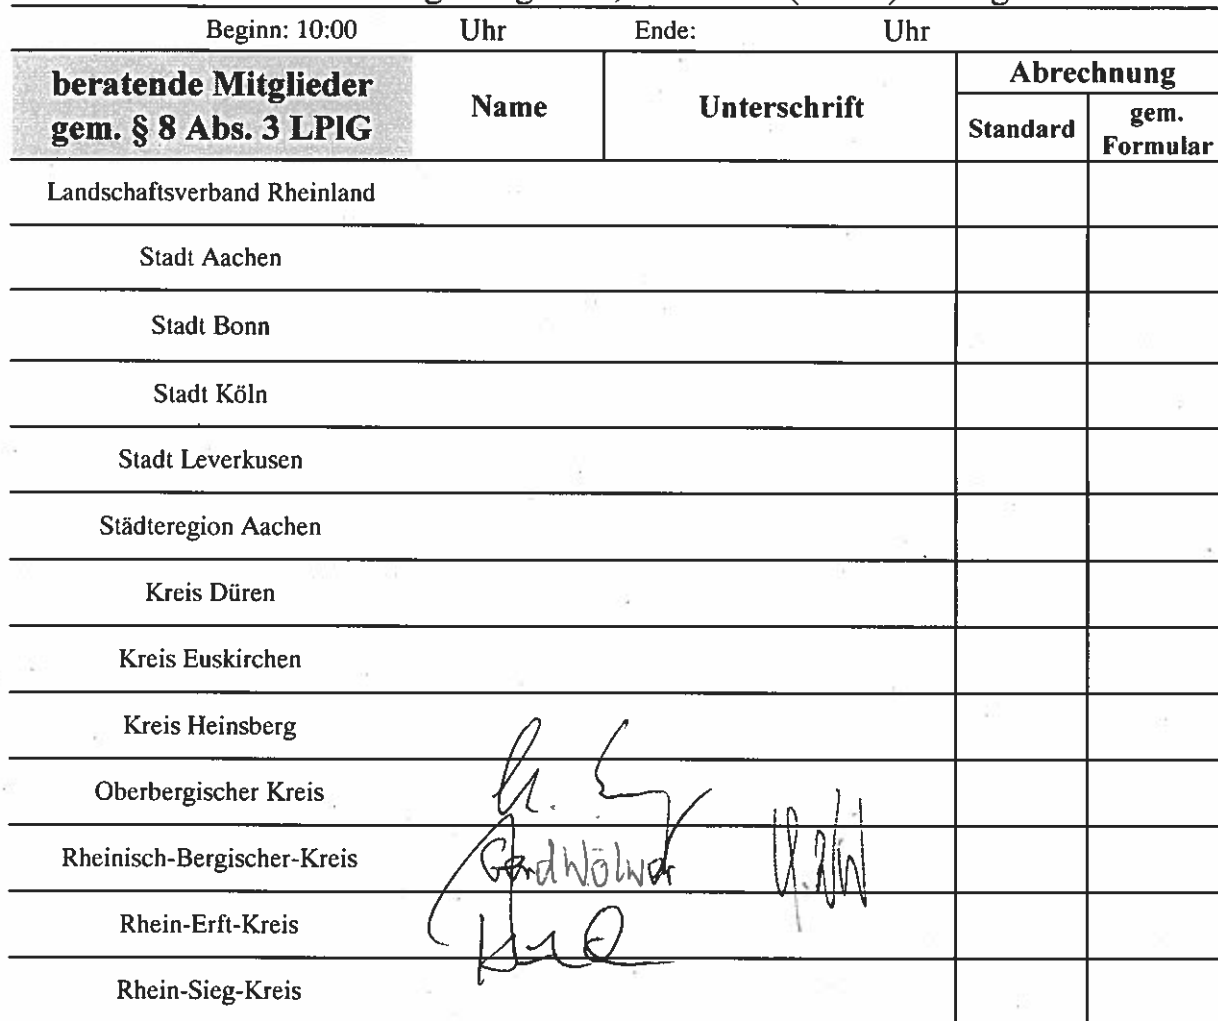 Beginn: 10:00 Uhr Ende: Uhr
beratende Mitglieder
gem. § 8 Abs. 3 LPlG
Name
Unterschrift
Abrechnung
Standard
gem.
Formular
Landschaftsverband Rheinland
Stadt Aachen
Stadt Bonn
Stadt Köln
Stadt Leverkusen
Städteregion Aachen
Kreis Düren
Kreis Euskirchen
Kreis Heinsberg
Oberbergischer Kreis
Rheinisch-Bergischer-Kreis Gerd Wölwer
Rhein-Erft-Kreis
Rhein-Sieg-Kreis